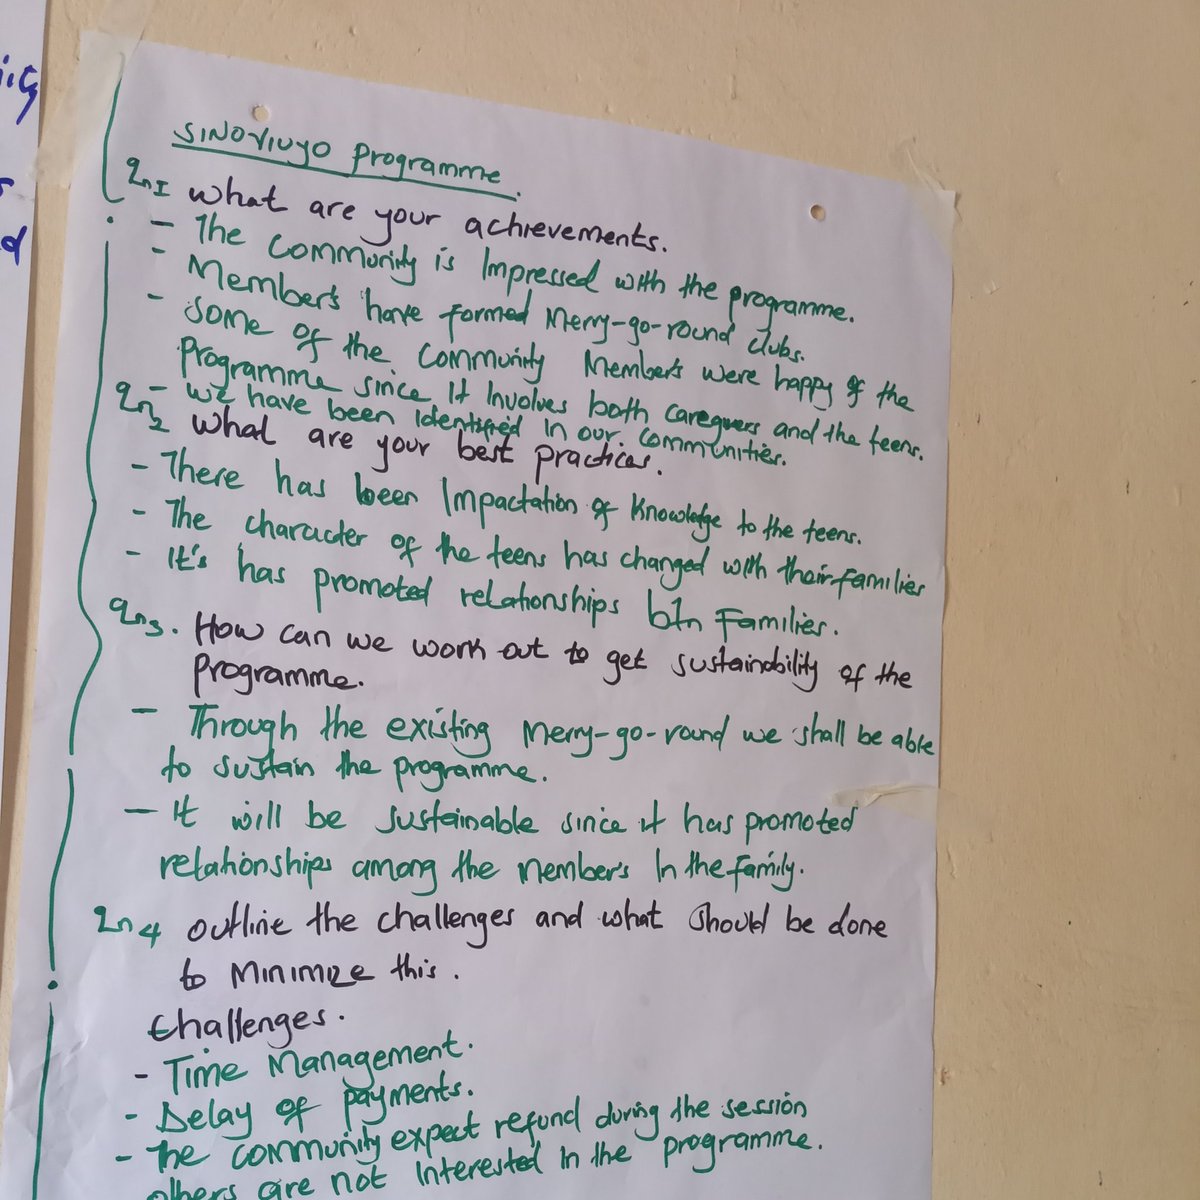 SINOVIUYO Programme.
Qn1 What are your achievements.
- The community is Impressed with the programme.
- Members have formed Merry-go-round clubs.
- Some of the community Members were happy of the
programme since It Involves both caregivers and the teens.
- We have been Identified In our communities.
Qn2 What are your best practices.
- There has been Impactation of Knowledge to the teens.
- The character of the teens has changed with their families
- It's has promoted relationships btn Families.
Qn3. How can we work out to get sustainability of the
programme.
- Through the existing Merry-go-round we shall be able
to sustain the programme.
- It will be sustainable since it has promoted
relationships among the members In the family.
Qn4 outline the challenges and what should be done
to Minimize this.
Challenges.
- Time Management.
- Delay of payments.
- The community expect refund during the session
others are not Interested In the programme.